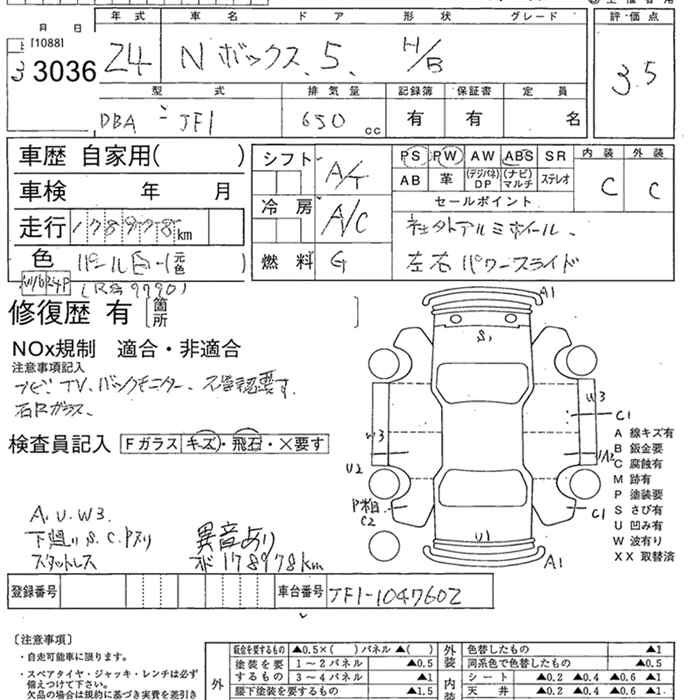 年式 車名 ドア 形状 グレード 評価点
月 日
[1088]
3036
24 Nボックス 5 H/B 3.5
型式 排気量 記録簿 保証書 定員
DBA - JF1 650 cc 有 有 名
車歴 自家用( )
車検 年 月
走行 178978 km
色 パール白-1 元色
W/B 24P (RG9990)
シフト A/T
冷房 A/C
燃料 G
PS PW AW ABS SR 内装 外装
AB 革 (デジパネ)DP (ナビ)マルチ ステレオ C C
セールポイント
社外アルミホイール、
左右パワースライド
修復歴 有 [箇所 ]
NOx規制 適合・非適合
注意事項記入
ナビ、TV、バックモニター、不確認要す
右Rガラス、
検査員記入 Fガラス キズ・飛石・×要す
A1
S1
U3
C1
W3
U2
P相
C2
C1
U1
A1
A 線キズ有
B 鈑金要
C 腐蝕有
M 跡有
P 塗装要
S さび有
U 凹み有
W 波有り
XX 取替済
A.U.W3.
下廻りS.C.Pスリ 異音あり
スタットレス 178978km
登録番号 車台番号 JF1-1047602
[注意事項]
・自走可能車に限ります。
・スペアタイヤ・ジャッキ・レンチは必ず
備えつけて下さい。
欠品の場合は規約に基づき実費を差引き
外
鈑金を要するもの ▲0.5×( )パネル▲( )
塗装を要するもの 1~2パネル ▲0.5
3~4パネル ▲1
腰下塗装を要するもの ▲1.5
外装 色替したもの ▲1
同系色で色替したもの ▲0.5
内装 シート ▲0.2 ▲0.4 ▲0.6 ▲1
天井 ▲0.2 ▲0.4 ▲0.6 ▲1